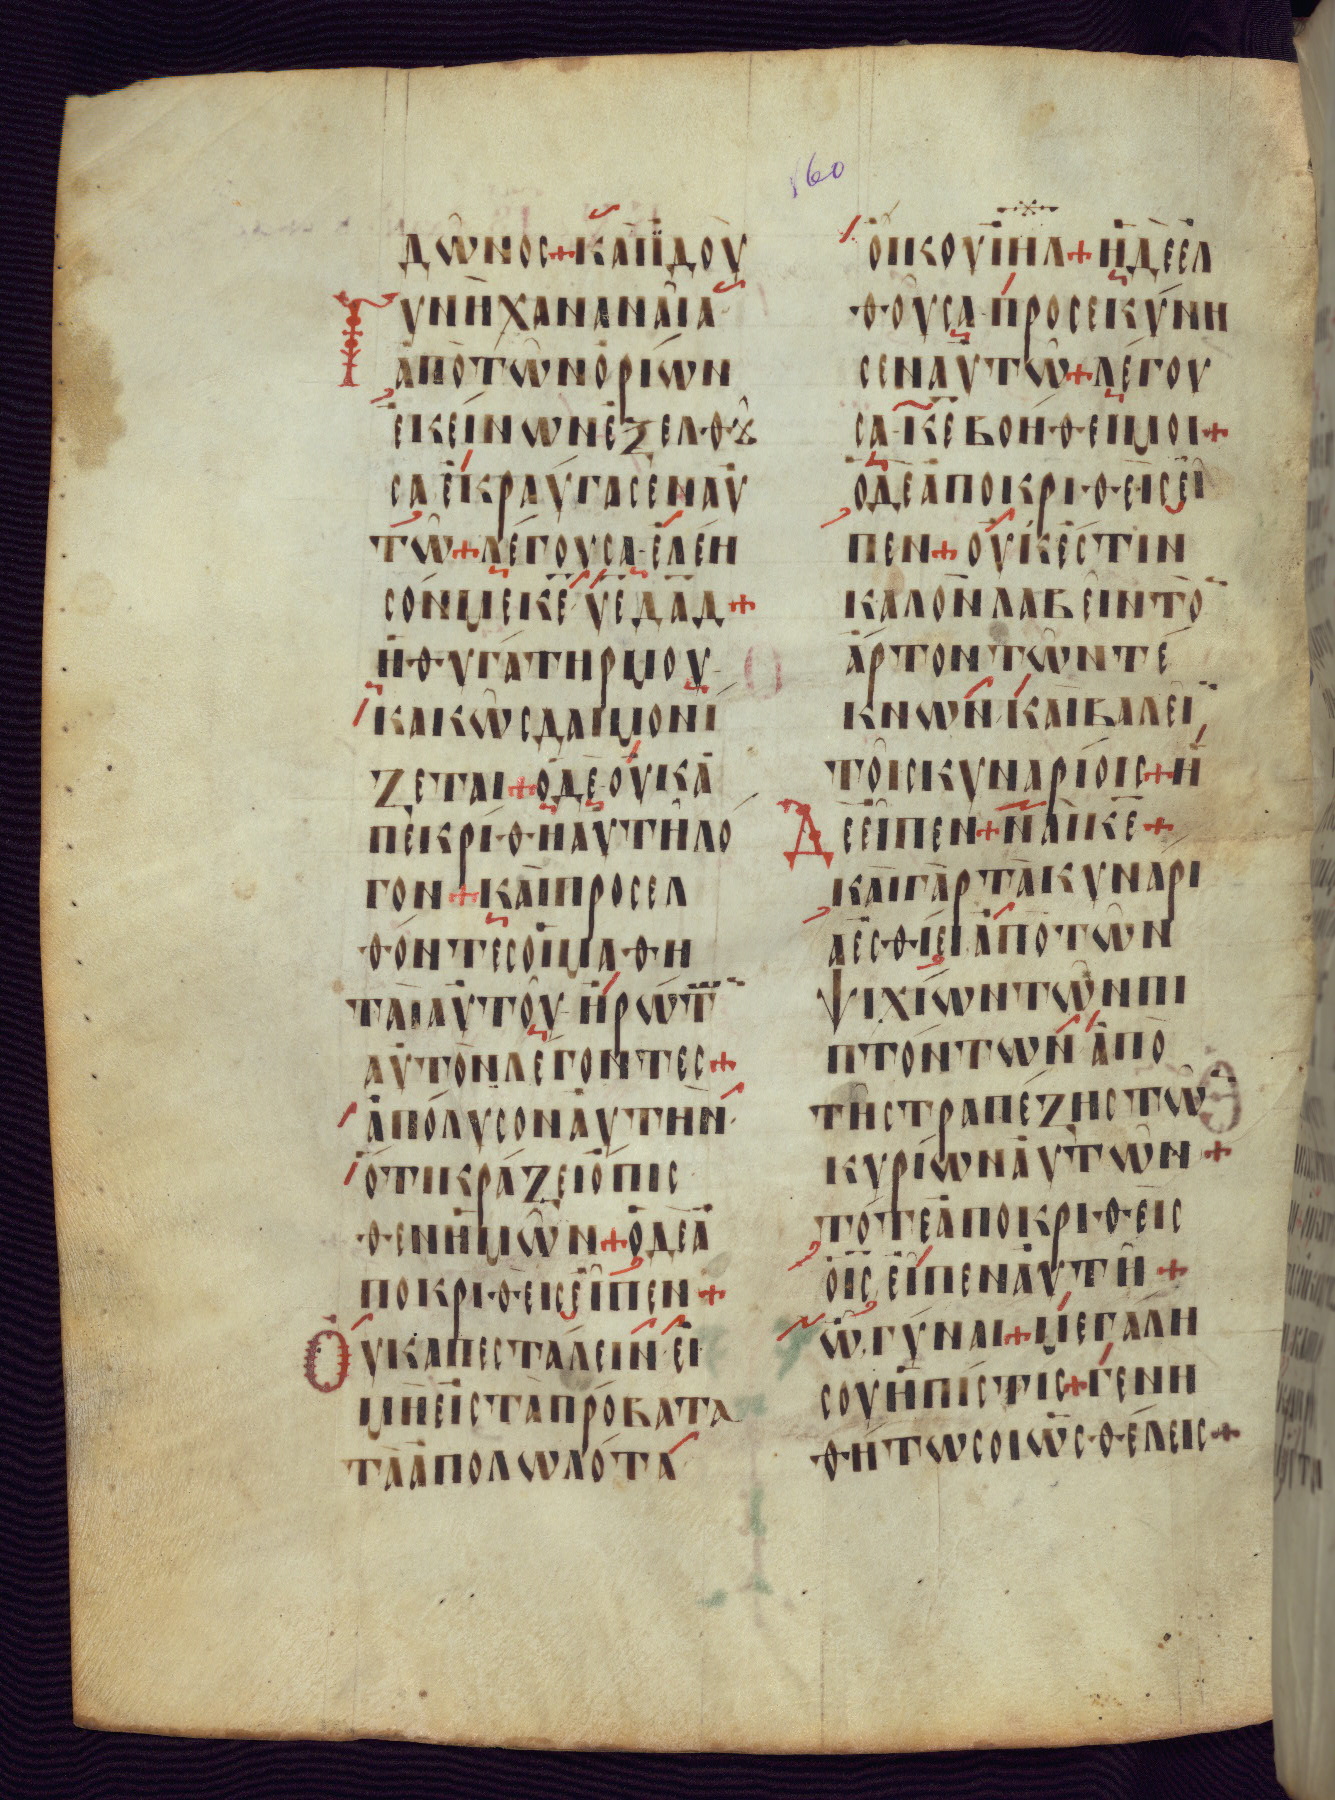 160
δῶνος + καὶ ϊδοὺ
Γυνὴ χαναναία
ἀπὸ τῶν ὁρίων
ἐκείνων ἐξελθοῦ
σα ἐκραύγασεν αὐ
τῶ + λέγουσα ἐλέη
σόν με κε υἱὲ δαδ +
ἡ θυγάτηρ μου
κακῶς δαιμονί
ζεται + ὁ δὲ οὐκ ἀ
πεκρίθη αὐτῆ λό
γον + καὶ προσελ
θόντες οἱ μαθη
ταὶ αὐτοῦ ἠρώτ
αὐτὸν λέγοντες +
ἀπόλυσον αὐτήν
ὅτι κράζει ὄπισ
θεν ἡμῶν + ὁ δὲ ἀ
ποκριθεὶς εἶπεν +
Οὐκ ἀπεστάλειν εἰ
μὴ εἰς τὰ πρόβατα
τὰ ἀπολωλότα
οἴκου ιηλ + ἡ δὲ ἐλ
θοῦσα προσεκύνη
σεν αὐτῶ + λέγου
σα κε βοήθει μοι +
ὁ δὲ ἀποκριθεὶς εἶ
πεν + οὐκ ἔστιν
καλὸν λαβεῖν τὸ
ἄρτον τῶν τέ
κνων καὶ βαλεῖ
τοῖς κυναρίοις + ἡ
Δὲ εἶπεν + ναὶ κε +
καὶ γὰρ τὰ κυνάρι
α ἐσθίει ἀπὸ τῶν
ψιχίων τῶν πι
πτόντων ἀπὸ
τῆς τραπέζης τῶ
κυρίων αὐτῶν +
τότε ἀποκριθεὶς
ὁ ις εἶπεν αὐτῆ +
ὦ γύναι + μεγάλη
σου ἡ πίστις + γενη
θήτω σοι ὡς θέλεις +